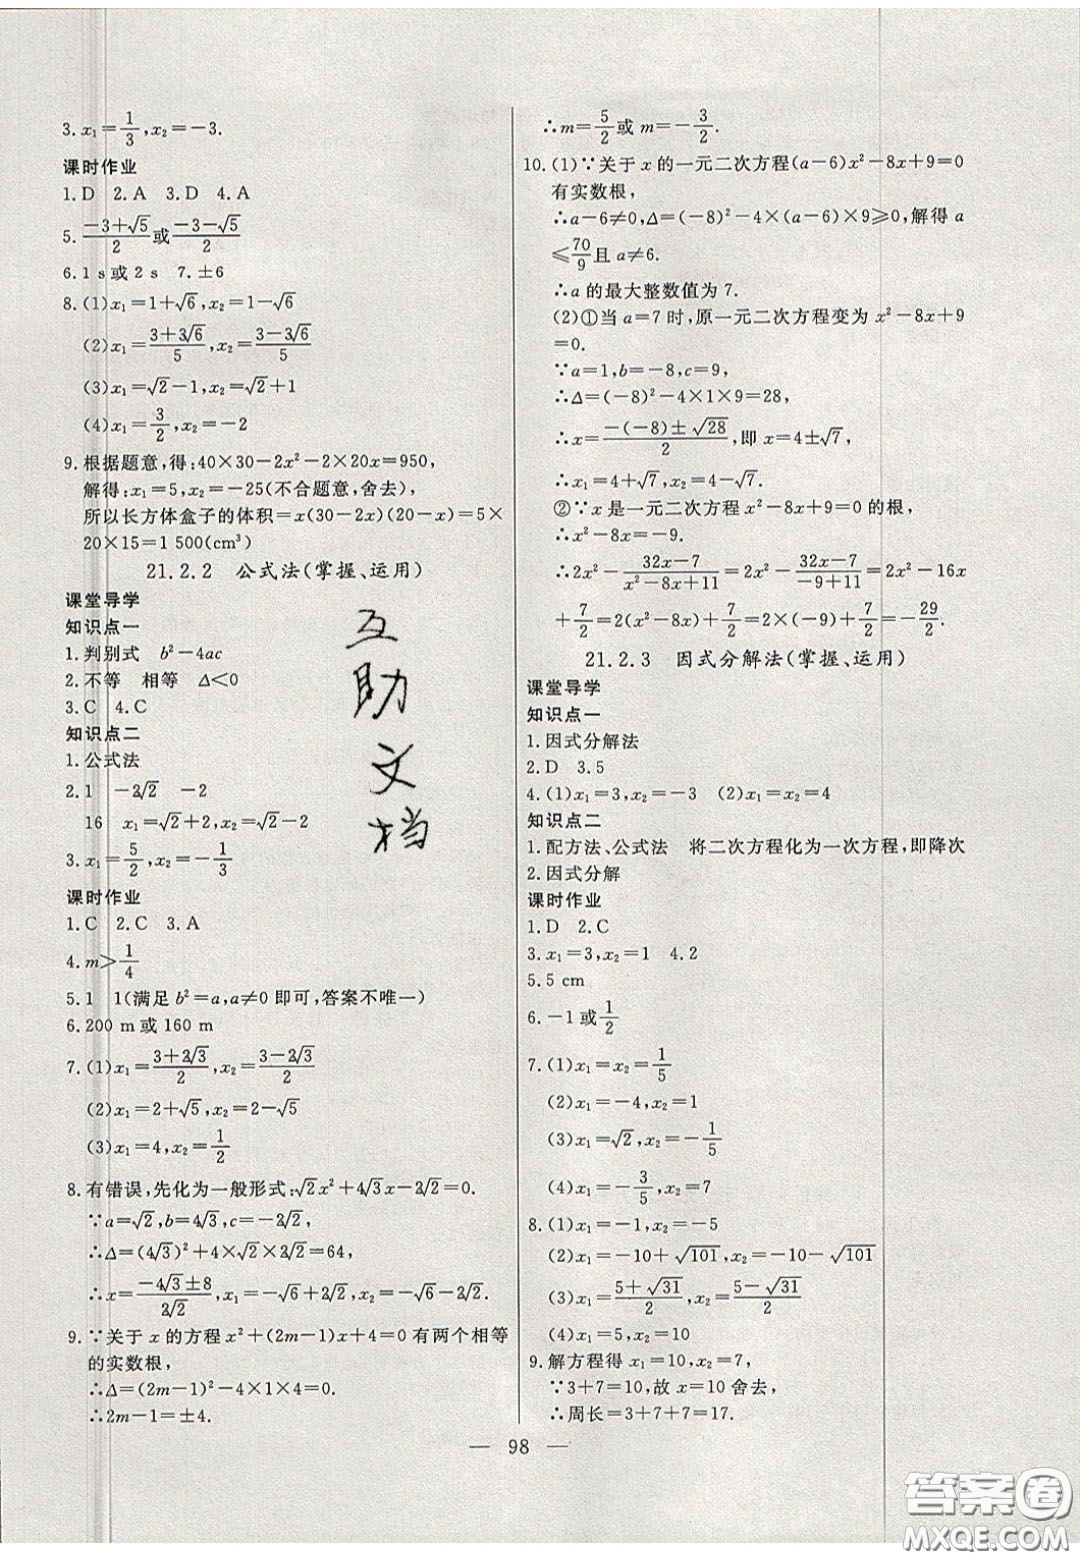 3. x₁=1/3, x₂=-3.
课时作业
1. D  2. A  3. D  4. A
5. (-3+√5)/2或(-3-√5)/2
6. 1 s或 2 s  7. ±6
8. (1)x₁=1+√6, x₂=1-√6
(2)x₁=(3+3√6)/5, x₂=(3-3√6)/5
(3)x₁=√2-1, x₂=√2+1
(4)x₁=3/2, x₂=-2
9. 根据题意,得:40×30-2x²-2×20x=950,
解得:x₁=5,x₂=-25(不合题意,舍去),
所以长方体盒子的体积=x(30-2x)(20-x)=5×
20×15=1 500(cm³)
21.2.2 公式法(掌握、运用)
课堂导学
知识点一
1. 判别式 b²-4ac
2. 不等 相等 Δ<0
3. C  4. C
知识点二
1. 公式法
2. 1  -2√2  -2
16  x₁=√2+2, x₂=√2-2
3. x₁=5/2, x₂=-1/3
课时作业
1. C  2. C  3. A
4. m>1/4
5. 1  1(满足 b²=a,a≠0 即可,答案不唯一)
6. 200 m或 160 m
7. (1)x₁=(3+2√3)/2, x₂=(3-2√3)/2
(2)x₁=2+√5, x₂=2-√5
(3)x₁=4, x₂=1/2
8. 有错误,先化为一般形式:√2x²+4√3x-2√2=0.
∵a=√2,b=4√3,c=-2√2,
∴Δ=(4√3)²+4×√2×2√2=64,
∴x=(-4√3±8)/(2√2), x₁=-√6+2√2, x₂=-√6-2√2.
9. ∵关于 x 的方程 x²+(2m-1)x+4=0 有两个相等
的实数根,
∴Δ=(2m-1)²-4×1×4=0,
∴2m-1=±4.
互
助
文
档
∴m=5/2或 m=-3/2.
10. (1)∵关于 x 的一元二次方程(a-6)x²-8x+9=0
有实数根,
∴a-6≠0,Δ=(-8)²-4×(a-6)×9≥0,解得 a
≤70/9且 a≠6.
∴a 的最大整数值为 7.
(2)①当 a=7 时,原一元二次方程变为 x²-8x+9
=0.
∵a=1,b=-8,c=9,
∴Δ=(-8)²-4×1×9=28,
∴x=(-(-8)±√28)/2,即 x=4±√7,
∴x₁=4+√7, x₂=4-√7.
②∵x 是一元二次方程 x²-8x+9=0 的根,
∴x²-8x=-9.
∴2x²-(32x-7)/(x²-8x+11)=2x²-(32x-7)/(-9+11)=2x²-16x
+7/2=2(x²-8x)+7/2=2×(-9)+7/2=-29/2.
21.2.3 因式分解法(掌握、运用)
课堂导学
知识点一
1. 因式分解法
2. D  3. 5
4. (1)x₁=3,x₂=-3  (2)x₁=x₂=4
知识点二
1. 配方法、公式法 将二次方程化为一次方程,即降次
2. 因式分解
课时作业
1. D  2. C
3. x₁=3,x₂=1  4. 2
5. 5 cm
6. -1 或1/2
7. (1)x₁=x₂=1/5
(2)x₁=-4,x₂=1
(3)x₁=√2, x₂=-1/5
(4)x₁=-3/5, x₂=7
8. (1)x₁=-1,x₂=-5
(2)x₁=-10+√101, x₂=-10-√101
(3)x₁=(5+√31)/2, x₂=(5-√31)/2
(4)x₁=5,x₂=10
9. 解方程得 x₁=10,x₂=7,
∵3+7=10,故 x=10 舍去,
∴周长=3+7+7=17.
— 98 —
答案圈
MXQE.COM